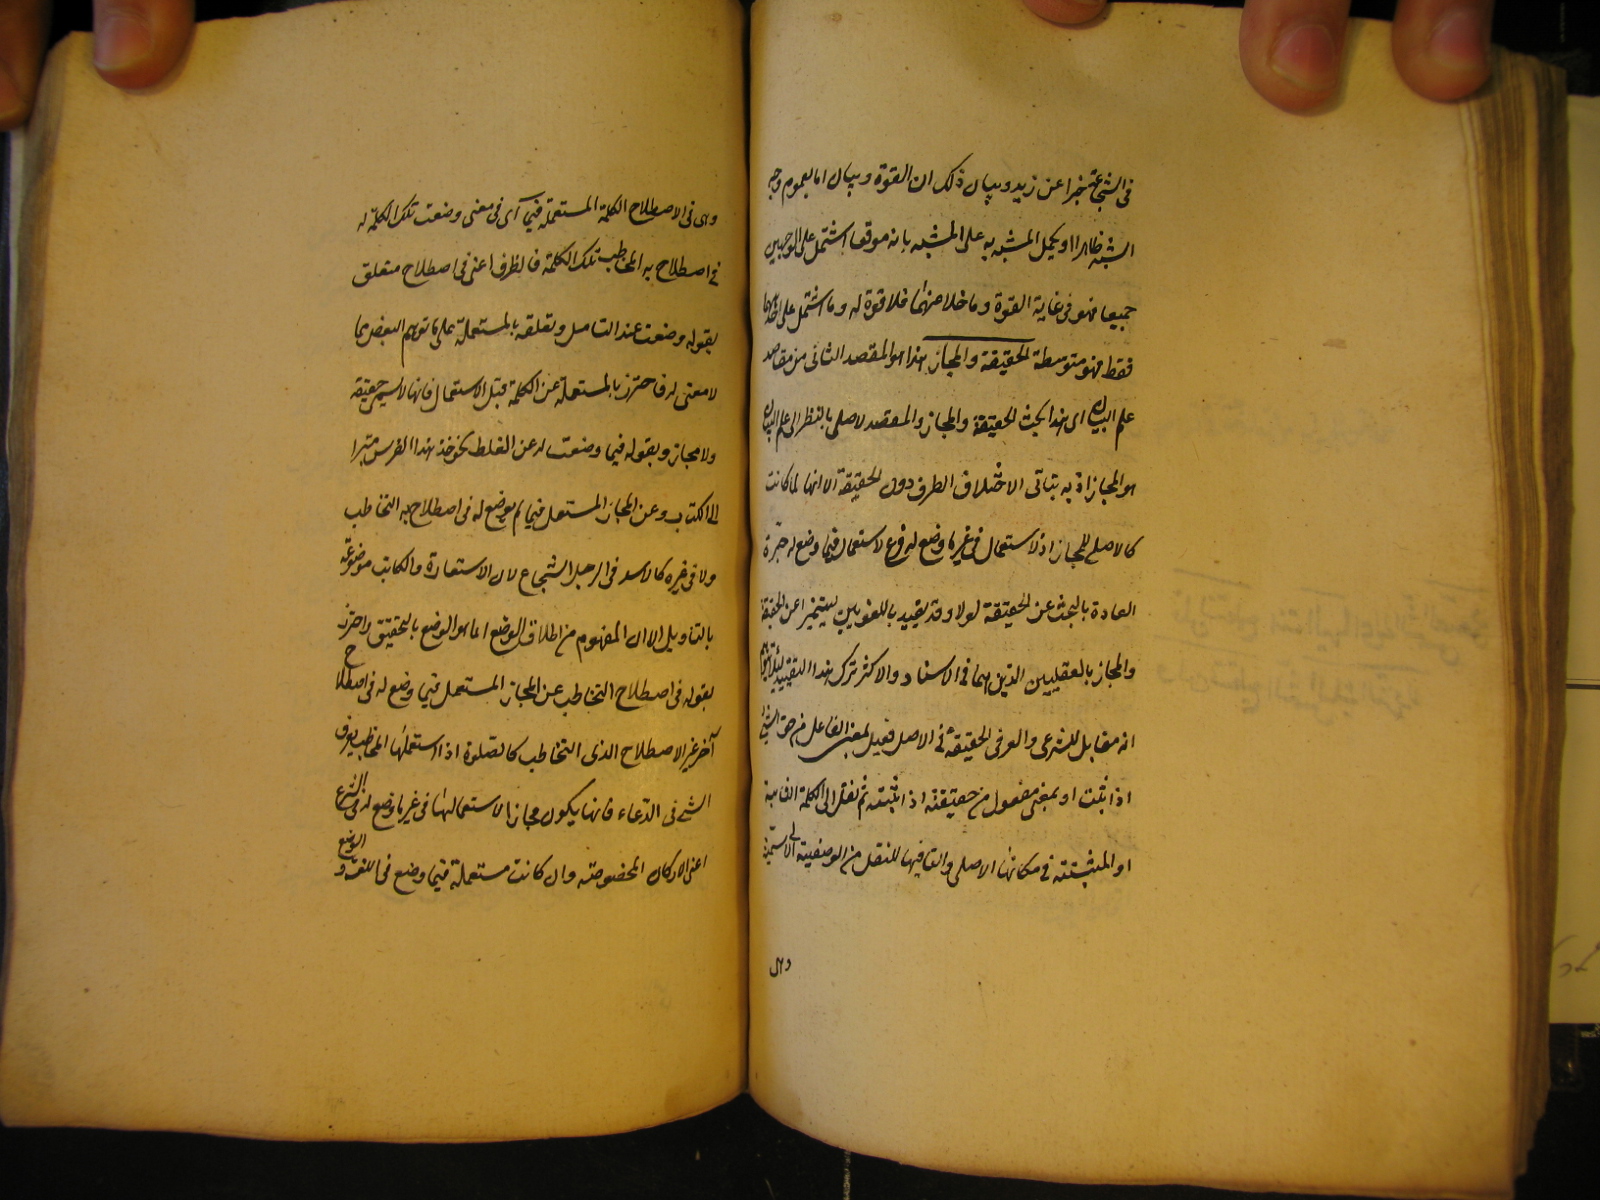 فى الشجاعة خبرا عن زيد وبيان ذلك ان القوة وبيان اما بعموم وجه
الشبه ظاهرا او بحمل المشبه به على المشبه بانه هو فما اشتمل على الوجهين
جميعا فهو فى غاية القوة وما خلا عنهما فلا قوة له وما اشتمل على احدهما
فقط فهو متوسطة الحقيقة والمجاز هذا هو المقصد الثانى من مقاصد
علم البيان اى هذا بحث الحقيقة والمجاز والمقصد الاصلى بالنظر الى علم البيان
هو المجاز اذ به يتاتى الاختلاف الطرق دون الحقيقة الا انها لما كانت
كالاصل للمجاز اذ الاستعمال فى غير ما وضع له فرع الاستعمال فيما وضع له جرت
العادة بالبحث عن الحقيقة اولا وقد يقيد باللغويين ليتميزا عن الحقيقة
والمجاز بالعقليين الذين هما فى الاسناد والاكثر ترك هذا التقييد لئلا يتوهم
انه مقابل للشرعى والعرفى الحقيقة فى الاصل فعيل بمعنى الفاعل من حق الشئ
اذا ثبت او بمعنى مفعول من حققته اذا اثبته ثم نقل الى الكلمة الثابتة
او المثبتة فى مكانها الاصلى والتا فيها للنقل من الوصفية الى الاسمية
وهى
وهى فى الاصطلاح الكلمة المستعملة فيما اى فى معنى وضعت تلك الكلمة له
فى اصطلاح به المخاطب تلك الكلمة فالظرف اعنى فى اصطلاح متعلق
بقوله وضعت عند التامل وتعلقه بالمستعملة على ما توهم البعض مما
لا معنى له فاحترز بالمستعملة عن الكلمة قبل الاستعمال فانها لا تسمى حقيقة
ولا مجاز وبقوله فيما وضعت له عن الغلط نحو خذ هذا الفرس مشيرا
الى الكتاب وعن المجاز المستعمل فيما لم يوضع له فى اصطلاح به التخاطب
ولا فى غيره كالاسد فى الرجل الشجاع لان الاستعارة والكانت موضوعة
بالتاويل الا ان المفهوم من اطلاق الوضع انما هو الوضع بالتحقيق واحترز
بقوله فى اصطلاح التخاطب عن المجاز المستعمل فيما وضع له فى اصطلاح
آخر غير الاصطلاح الذى التخاطب كالصلوة اذا استعملها المخاطب بعرف
الشرع فى الدعاء فانها يكون مجازا لاستعمالها فى غير ما وضع له فى الشرع
اعنى الاركان المخصوصة وان كانت مستعملة فيما وضع فى اللغة و الوضع